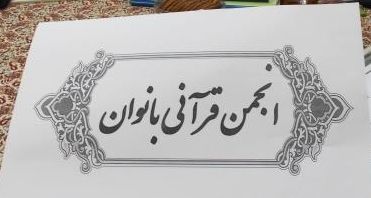 انجمن قرآنی بانوان